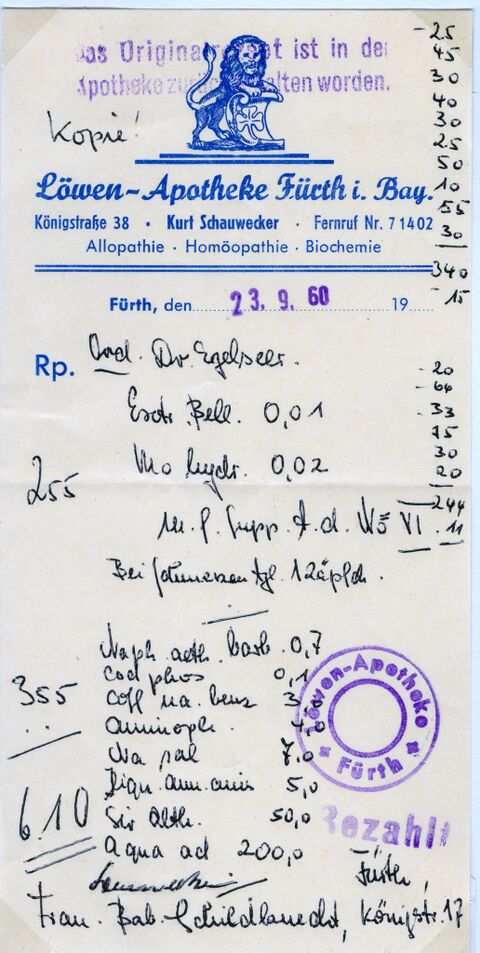 Das Originalrezept ist in der
Apotheke zurückbehalten worden.
Kopie!
Löwen-Apotheke Fürth i. Bay.
Königstraße 38 · Kurt Schauwecker · Fernruf Nr. 71402
Allopathie · Homöopathie · Biochemie
- 25
45
30
40
30
25
50
10
55
30
340
- 15
Fürth, den 23. 9. 60 19
Rp. Ord. Dr. Egelseer.
Extr. Bell. 0,01
Mo hydr. 0,02
M. f. Supp. t. d. No VI
Bei Schmerzen tgl. 1 Zäpfch.
- 20
- 66
- 33
75
30
20
244
. 11
255
Naph. aeth. barb. 0,7
Cod phos 0,1
Coff na. benz 3,0
Aminoph. 4,0
Na sal 7,0
Liqu. Amm. anis 5,0
Sir Alth. 50,0
Aqua ad 200,0
355
6.10
Löwen-Apotheke
Fürth
Bezahlt
Fürth,
Frau. Bab. Schildknecht, Königstr. 17